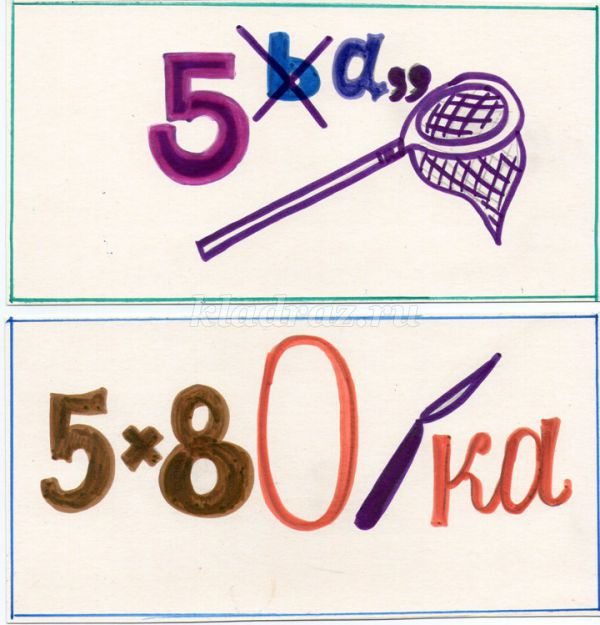 5 ь а ,,
kladraz.ru
5×80/ка